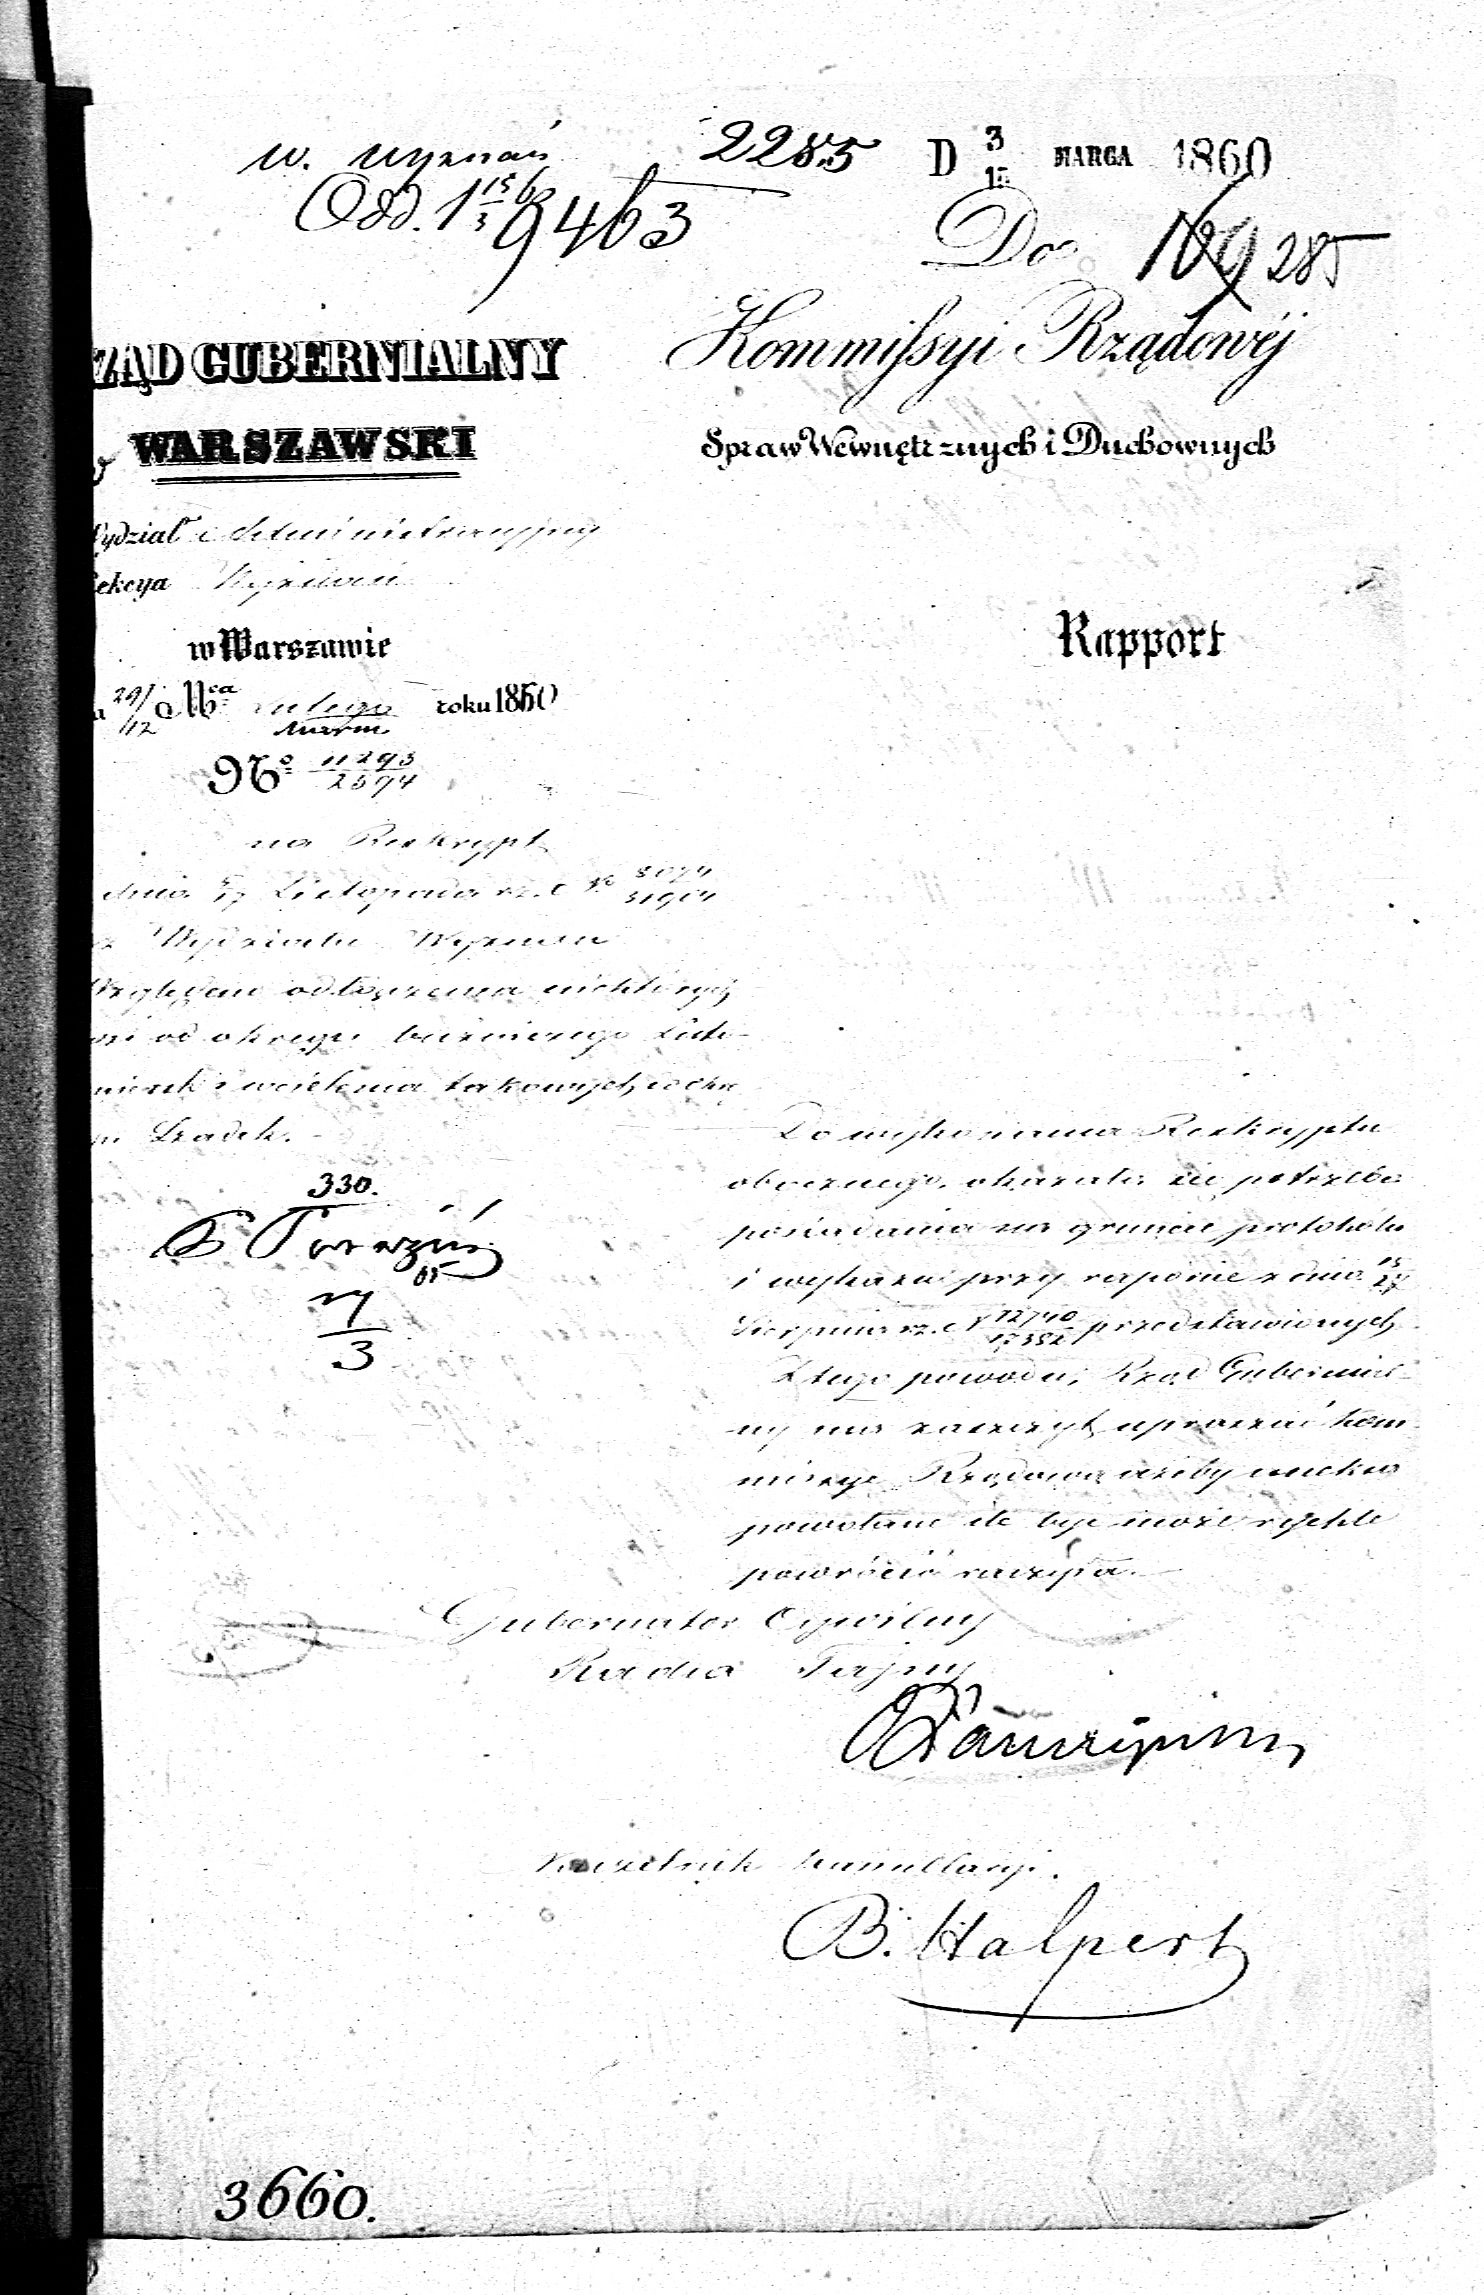 w. wyznań 2285 D 3/15 MARCA 1860
Odd. 1 15/3 60 9463
Do № 9 285
ZĄD GUBERNIALNY
WARSZAWSKI
Kommissyi Rządowéj
Spraw Wewnętrznych i Duchownych
ydział Administracyjny
ekcya Wyznań
w Warszawie
Rapport
a 29/12 Mca Lutego/Marca roku 1860
No 11293/2594
na Reskrypt
dnia 5/17 Listopada rz. No 8074/31904
z Wydziału Wyznań
Względem odłączenia niektórych
wsi od okręgu bużniczego Luto-
miersk i wcielenia takowych do okrę
gu Szadek.
330.
7/3
Do wykonania Reskryptu
obocznego, okazała się potrzeba
posiadania na gruncie protokółu
i wykazu przy raporcie z dnia 15/27
Sierpnia rz. No 72740/17382 przedstawionych
Z tego powodu, Rząd Gubernial-
ny ma zaszczyt upraszać Kom-
missye Rządową ażeby anekxa
powołane ile być może rychło
powrócić raczyła.
Gubernator Cywilny
Radca Tajny
Naczelnik Kancellaryi.
B. Halpert
3660.